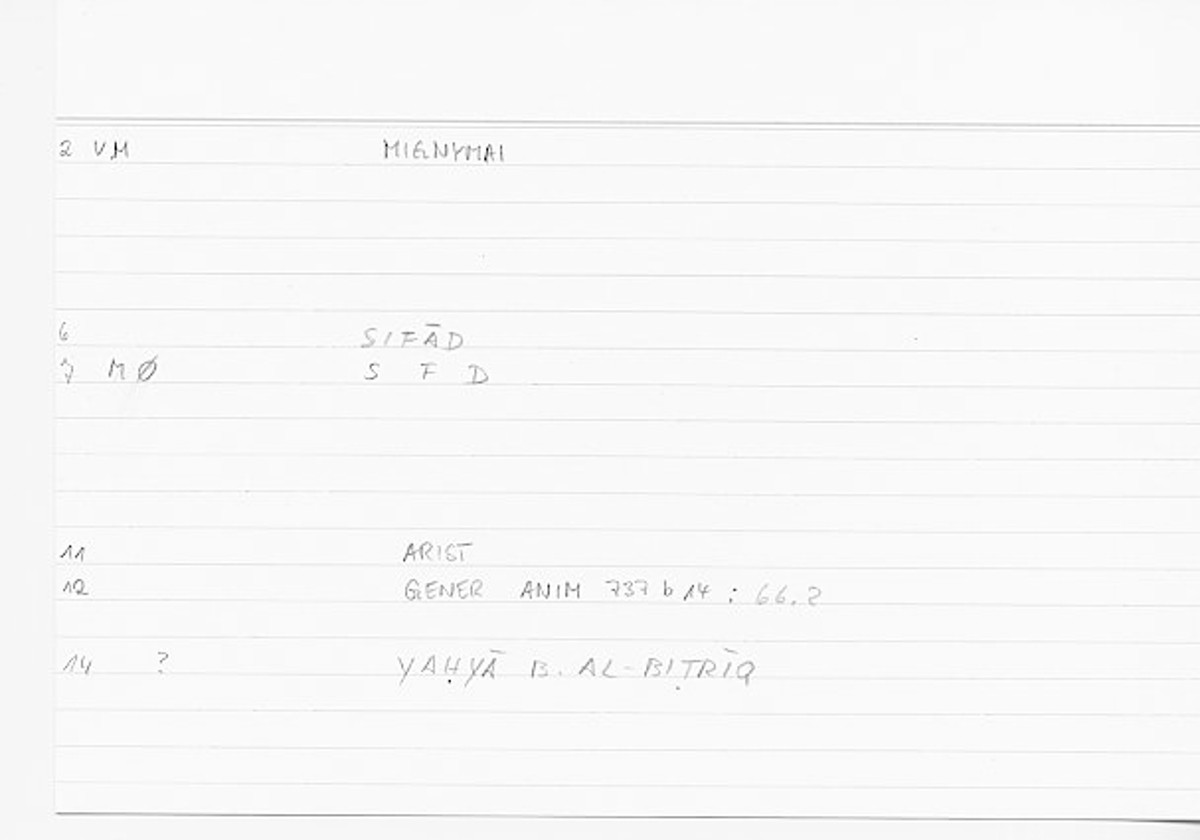 2 VM MIGNYMAI
6 SIFĀD
7 MØ S F D
11 ARIST
12 GENER ANIM 737 b 14 : 66.2
14 ? YAḤYĀ B. AL-BIṬRĪQ